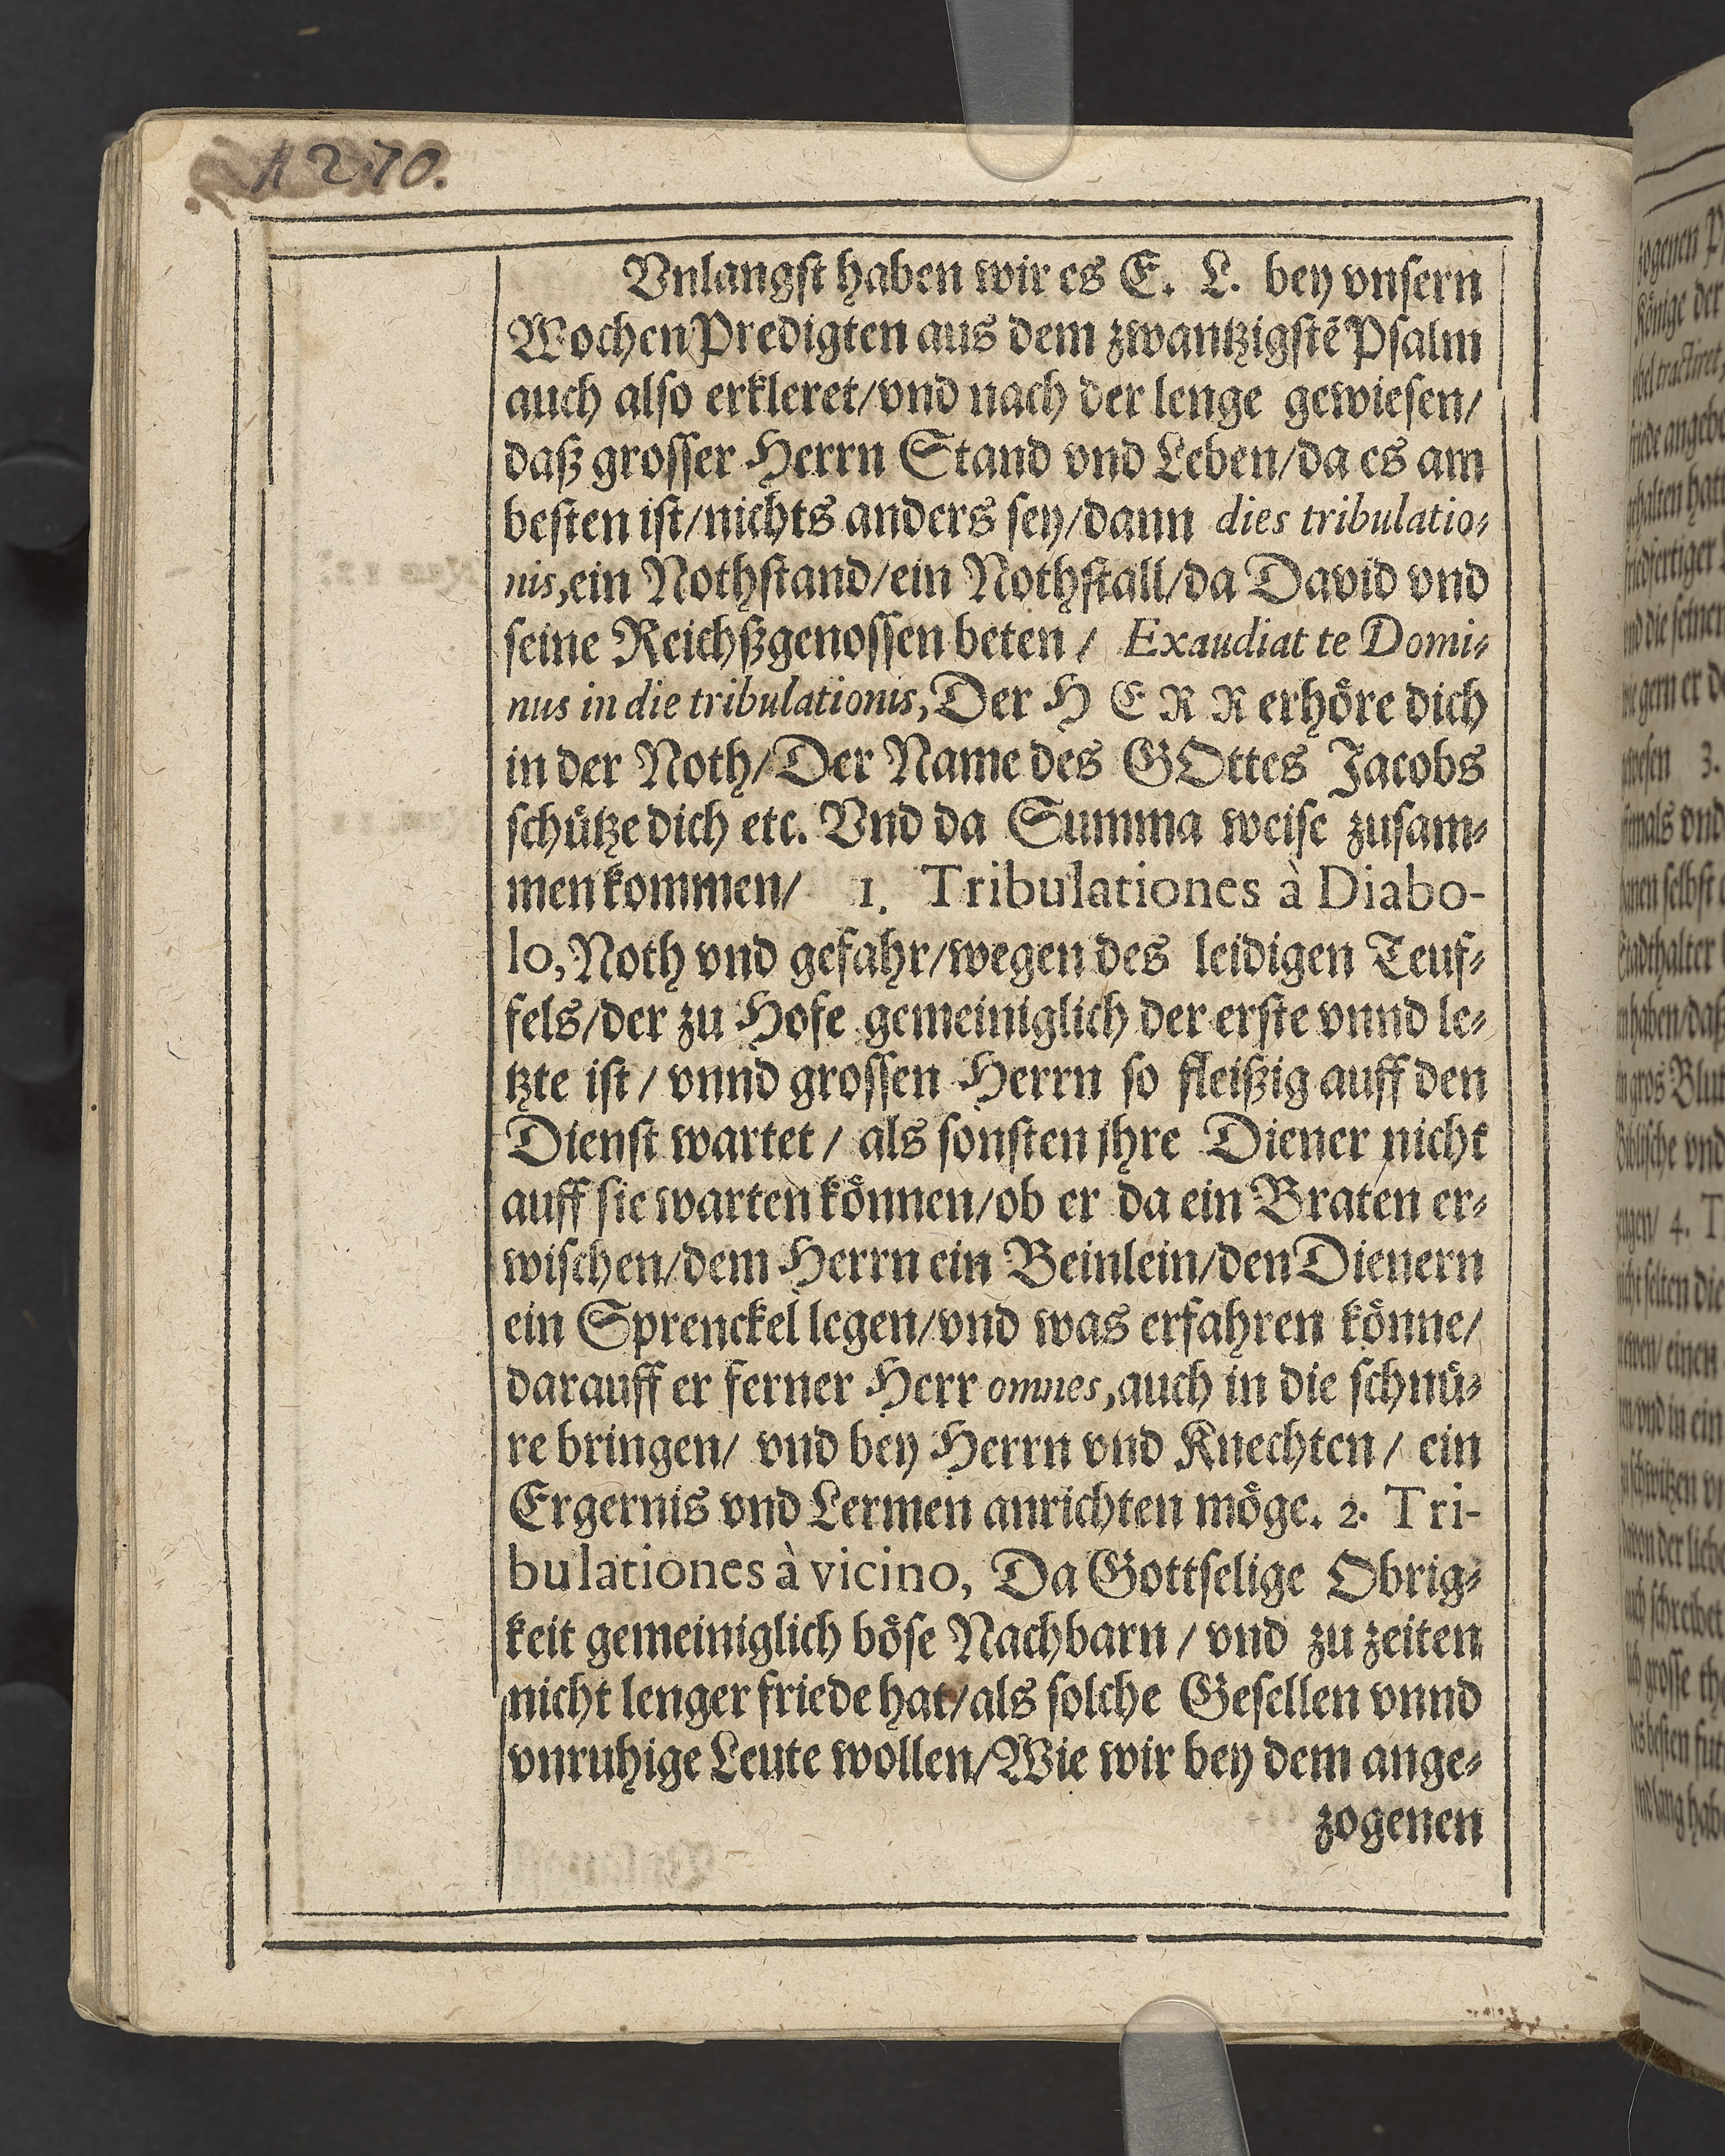 1270.
Vnlangst haben wir es E. L. bey vnsern
WochenPredigten aus dem zwantzigstẽ Psalm
auch also erkleret/vnd nach der lenge gewiesen/
daß grosser Herrn Stand vnd Leben/da es am
besten ist/nichts anders sey/dann dies tribulatio-
nis,ein Nothstand/ein Nothstall/da David vnd
seine Reichßgenossen beten / Exaudiat te Domi-
nus in die tribulationis, Der H E R R erhöre dich
in der Noth/Der Name des GOttes Jacobs
schütze dich etc. Vnd da Summa weise zusam-
men kommen/ 1. Tribulationes à Diabo-
lo, Noth vnd gefahr/wegen des leidigen Teuf-
fels/der zu Hofe gemeiniglich der erste vnnd le-
tzte ist / vnnd grossen Herrn so fleißig auff den
Dienst wartet / als sonsten jhre Diener nicht
auff sie warten können/ob er da ein Braten er-
wischen/dem Herrn ein Beinlein/den Dienern
ein Sprenckel legen/vnd was erfahren könne/
darauff er ferner Herr omnes,auch in die schnü-
re bringen/ vnd bey Herrn vnd Knechten / ein
Ergernis vnd Lermen anrichten möge. 2. Tri-
bulationes à vicino, Da Gottselige Obrig-
keit gemeiniglich böse Nachbarn / vnd zu zeiten
nicht lenger friede hat/als solche Gesellen vnnd
vnruhige Leute wollen/Wie wir bey dem ange-
zogenen